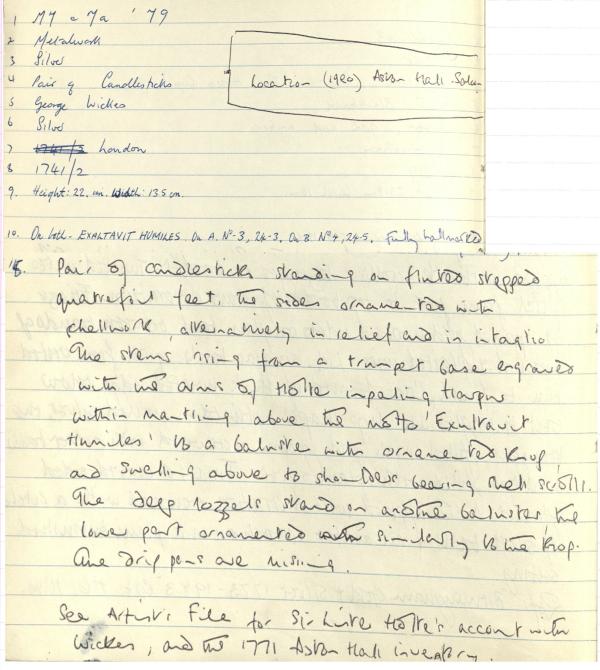 1 M 7 a '79
2 Metalwork
3 Silver
4 Pair of Candlesticks
5 George Wickes
6 Silver
7 1741/2 London
8 1741/2
9. Height: 22. cm. Width: 13.5 cm.
Location (1980) Aston Hall. Saloon
10. On both. EXALTAVIT HUMILES On A. Nº-3, 24-3. On B. Nº4, 24-5. Fully hallmarked
15. Pair of candlesticks standing on fluted stepped
quatrefoil feet, the sides ornamented with
shellwork, alternatively in relief and in intaglio
The stems rising from a trumpet base engraved
with the arms of Holte impaling Harpur
within mantling above the motto 'Exultavit
Humiles' to a baluster with ornamented knop,
and swelling above to shoulders bearing shell scrolls.
The deep nozzels stand on another baluster, the
lower part ornamented with similarly to the knop.
The drip pans are missing.
See Artist's File for Sir Lister Holte's account with
Wickes, and the 1771 Aston Hall inventory.